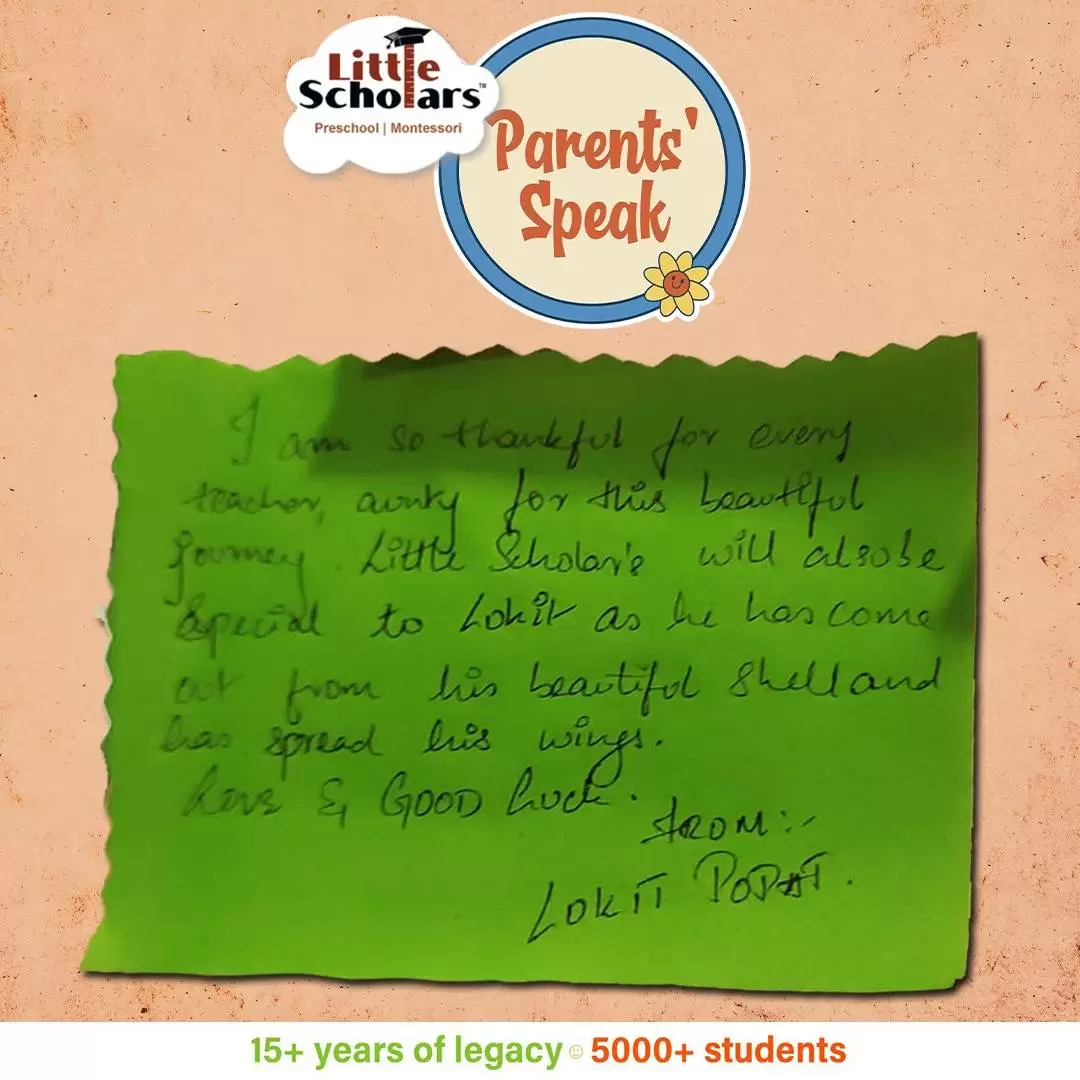 Little
Scholars™
Preschool | Montessori
Parents'
Speak
I am so thankful for every
teacher, aunty for this beautiful
journey. Little Scholar's will also be
special to Lokit as he has come
out from his beautiful shell and
has spread his wings.
Love & GOOD Luck.
FROM:-
LOKIT POPAT.
15+ years of legacy 5000+ students